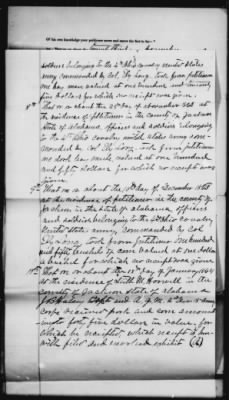 Of his own knowledge your petitioner owns and states the fact to be:
soldiers belonging to the 4th Ohio cavalry united states
army commanded by Col. Eli Long. took from petitioner
one bay mare valued at one hundred and twenty
five dollars for which no receipt was given.
8th That on or about the day of November 1863 at
the residence of petitioner in the county of Jackson
State of Alabama, officers and soldiers belonging
to the 4th Ohio cavalry united states army com-
manded by Col Eli Long. took from petitioner
one mule valued at one hundred
and fifty dollars for which no receipt was
given
9th That on or about the 10th day of December 1863
at the residence of petitioner in the county of
Jackson in the state of Alabama officers
and soldiers belonging to the 4th Ohio cavalry
united states army commanded by Col
Eli Long, took from petitioner one hundred
and fifty bushels of corn valued at one dollar
a bushel for which no receipt was given
10th That on or about the day of January 1864
at the residence of in the
county of Jackson state of Alabama
Capt and A. Q. M.
Corps received pork and corn amount-
ing to forty five dollars in value, for
which he receipted which receipt is here-
with filed and marked exhibit